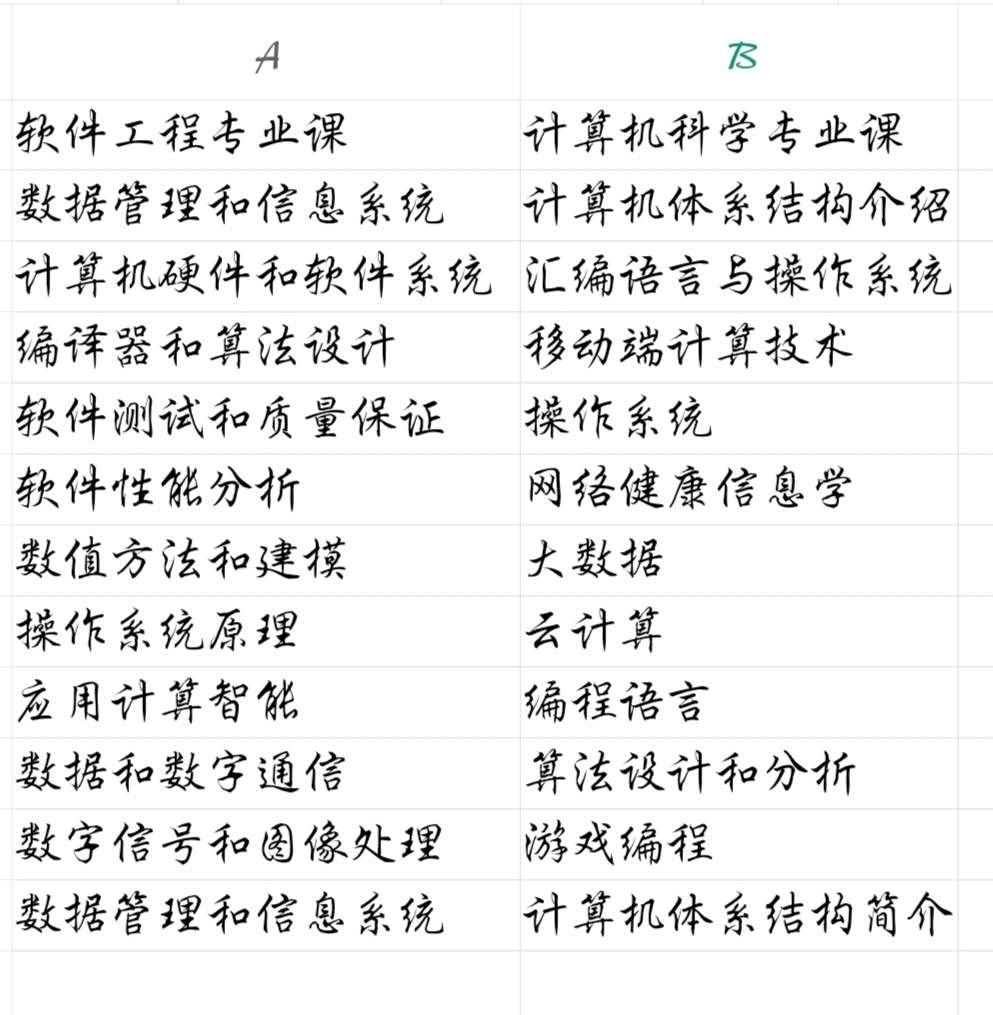 A B
软件工程专业课 计算机科学专业课
数据管理和信息系统 计算机体系结构介绍
计算机硬件和软件系统 汇编语言与操作系统
编译器和算法设计 移动端计算技术
软件测试和质量保证 操作系统
软件性能分析 网络健康信息学
数值方法和建模 大数据
操作系统原理 云计算
应用计算智能 编程语言
数据和数字通信 算法设计和分析
数字信号和图像处理 游戏编程
数据管理和信息系统 计算机体系结构简介